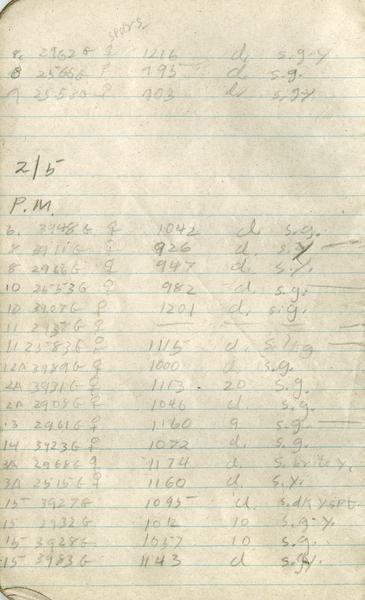 d. s.g.y
8 2565G ♀ 795 d. s.g.
703 d. s.g.y
2/5
P.M.
6. 3948G ♀ 1042 d. s.g.
♀ 926 d. s.y
8 ♀ 947 d. s.y.
10 2553G ♀ 982 d. s.g.
10 3907G ♀ 1201 d. s.g.
11 ♀
11 2583G ♀ 1115 d.
12A 3989G ♀ 1000 d. s.g.
2A 3931G ♀ 1113. 20 s.g.
2A 2908G ♀ 1046 d. s.g.
13 2961G ♀ 1160 9 s.g.
14 3923G ♀ 1072 d. s.g.
3A 2968G ♀ 1174 d. s.
3A 2515G ♀ 1160 d. s.y.
15 3927G 1095 d.
15 2932G 1012 10 s.g-y.
15 3928G 1057 10 s.g.
15 3983G 1143 d s.gy.